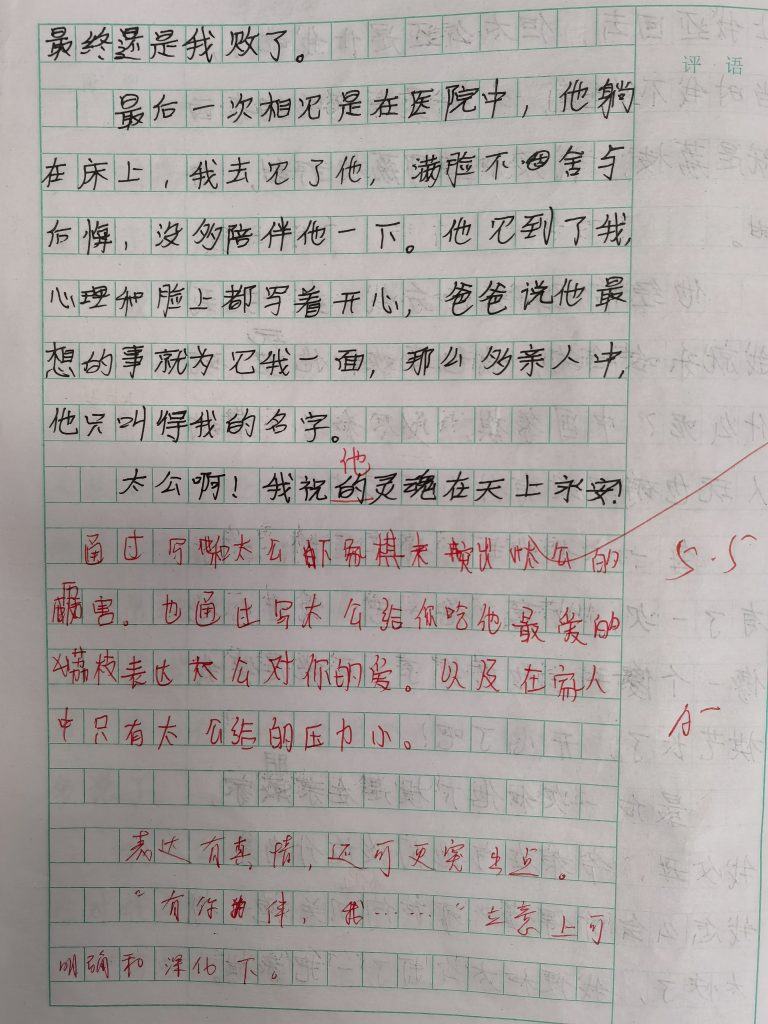 最终还是我败了。
评语
最后一次相见是在医院中，他躺
在床上，我去见了他，满脸不舍与
后悔，没多陪伴他一下。他见到了我，
心理和脸上都写着开心，爸爸说他最
想的事就为见我一面，那么多亲人中，
他只叫得我的名字。
他
太公啊！我祝的灵魂在天上永安！
通过写和太公下象棋来突出太公的
5.5
厉害。也通过写太公给你吃他最爱的
荔枝表达太公对你的爱。以及在家人
A-
中只有太公给的压力小。
表达有真情，还可更突出点。
"有你为伴，我……"立意上可
明确和深化下。